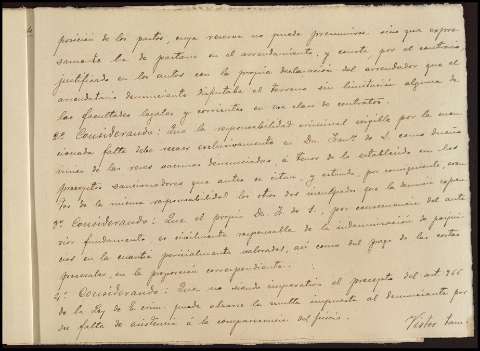 posicion de los pastos, cuya reserva no puede presumirse sino que expre-
samente ha de pactarse en el arrendamiento, y consta por el contrario,
justificado en los autos con la propia declaración del arrendador que el
arrendatario denunciante disfrutaba el terreno sin limitación alguna de
las facultades legales y corrientes en esa clase de contratos.
2º Considerando: Que la responsabilidad criminal exigible por la men-
cionada falta debe recaer exclusivamente en Dn. de S. como dueño
de las reses vacunas denunciadas, á tenor de lo establecido en los
preceptos sancionadores que antes se citan, y estando, por consiguiente, exen-
tos de la misma responsabilidad los otros dos inculpados que la denuncia expresa.
3º Considerando: Que el propio Dn. F. de S., por consecuencia del ante-
rior fundamento, es civilmente responsable de la indemnización de perjui-
cios en la cuantía pericialmente valorados, así como del pago de las costas
procesales, en la proporción correspondiente.
4º Considerando: Que no siendo imperativo el precepto del art. 966
de la Ley de E. crim. puede alzarse la multa impuesta al denunciante por
su falta de asistencia á la comparecencia del juicio.
Vistos